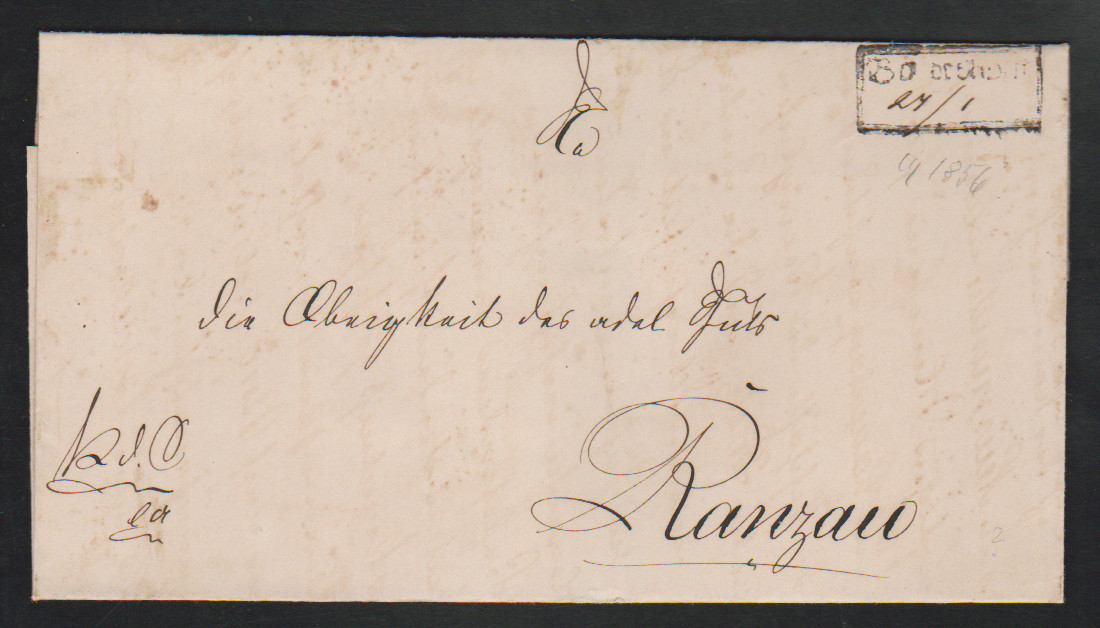 Bordesholm
24/1
1856
An
die Obrigkeit des adel Guts
Ranzau
K. d. S